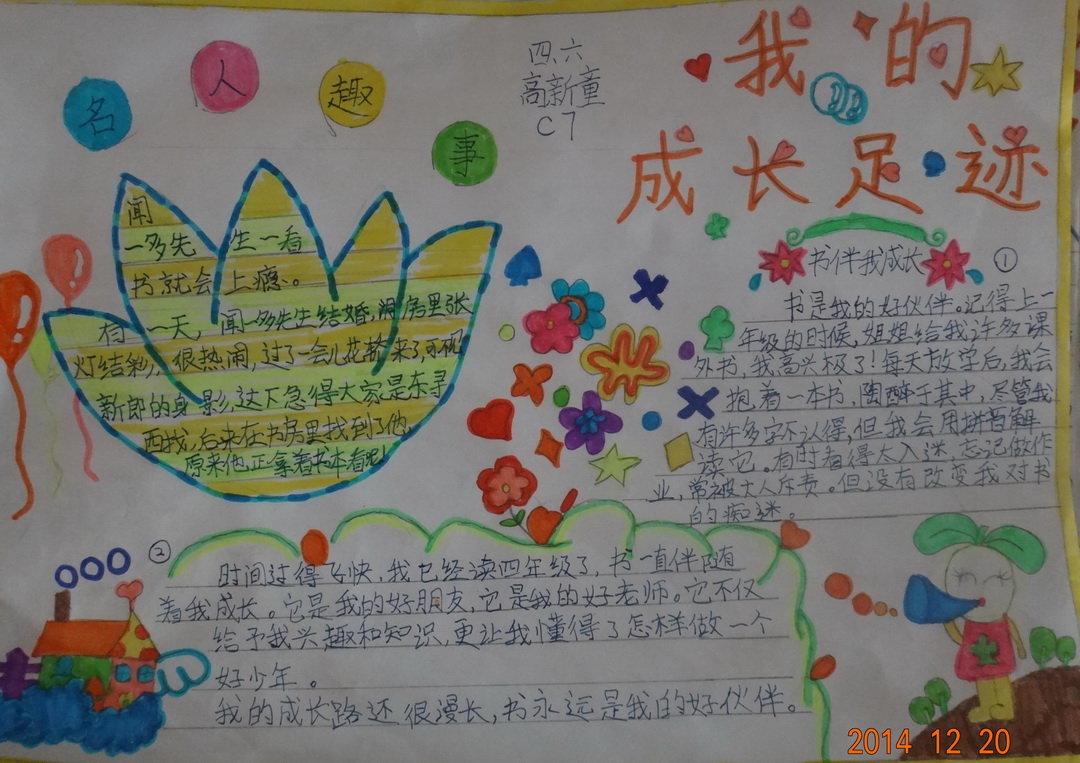 我的
成长足迹
四.六
高新童
C7
名人趣事
闻
一多先生一看
书就会上瘾。
有一天，闻一多先生结婚，洞房里张
灯结彩，很热闹，过了一会儿花轿来了，不见
新郎的身影，这下急得大家是东寻
西找，后来在书房里找到了他，
原来他正拿着书本看呢！
书伴我成长 ①
书是我的好伙伴。记得上一
年级的时候，姐姐给我许多课
外书，我高兴极了！每天放学后，我会
抱着一本书，陶醉于其中，尽管我
有许多字不认得，但我会用拼音解
读它。有时看得太入迷，忘记做作
业，常被大人斥责。但没有改变我对书
的痴迷。
②
时间过得飞快，我已经读四年级了，书一直伴随
着我成长。它是我的好朋友，它是我的好老师。它不仅
给予我兴趣和知识，更让我懂得了怎样做一个
好少年。
我的成长路还很漫长，书永远是我的好伙伴。
2014 12 20